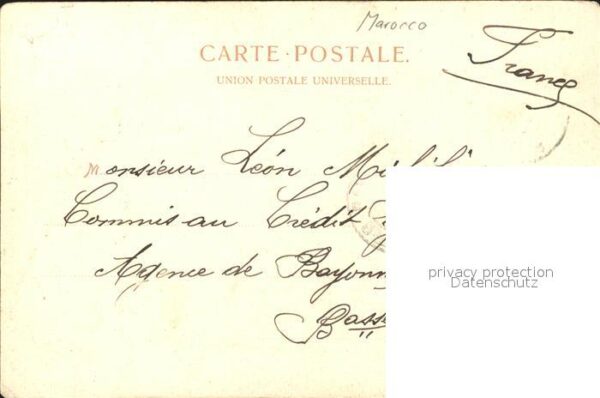 Marocco
CARTE POSTALE.
UNION POSTALE UNIVERSELLE.
France
Monsieur Léon
Commis au Crédit
Agence de Bayonn
Basse
privacy protection
Datenschutz